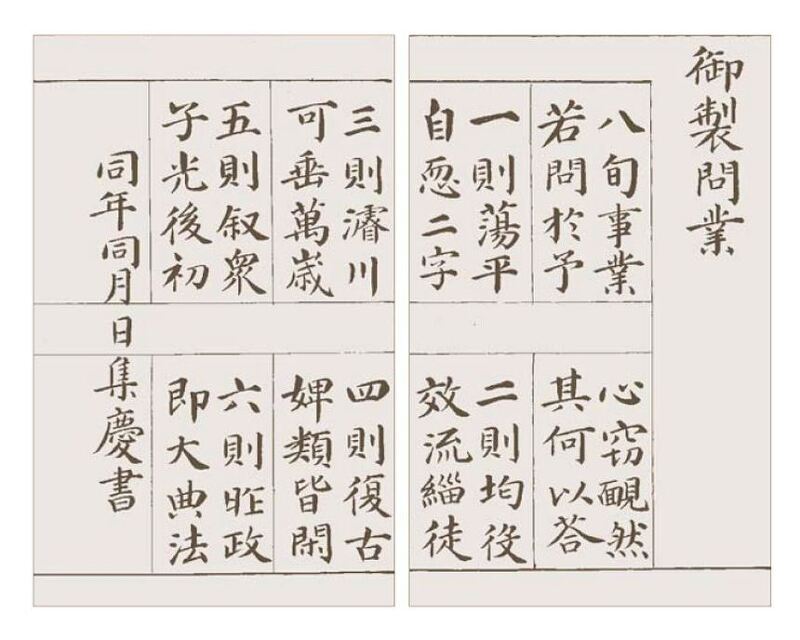 御製問業
八旬事業
若問於予
心窃靦然
其何以答
一則蕩平
自恧二字
二則均役
效流緇徒
三則濬川
可垂萬歳
四則復古
婢類皆閑
五則叙衆
子光後初
六則昨政
即大典法
同年同月日集慶書